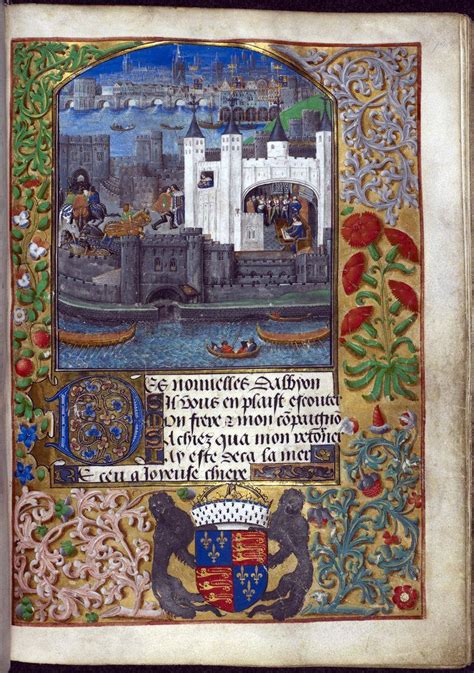 Des nouuelles Dalbyon
Sil vous en plaist escouter
Mon frere & mon cōpaignō
Sachiez qua mon retorner
Jay este deca la mer
Receu a Joyeuse chiere